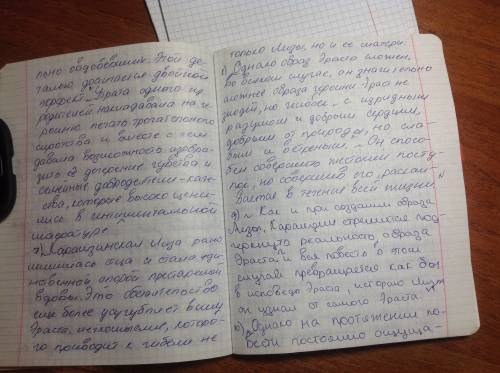 лено овдовевшим. Этой де-
талью достигался двойной
эффект. Утрата одного из
родителей накладывала на ге-
роиню печать трогательного
сиротства и вместе с тем
давала возможность изобра-
зить её дочерние чувства и
семейные добродетели - каче-
ства, которые высоко цени-
лись в сентиментальной
литературе
7) Карамзинская Лиза рано
лишилась отца и стала един-
ственной опорой престарелой
вдовы. Это обстоятельство
еще более усугубляет вину
Эраста, легкомыслие, которо-
го приводит к гибели не
только Лизы, но и ее матери.
8) Однако образ Эраста сложен,
во всяком случае, он значительно
сложнее образа героини Эраст не
злодей, но человек "с изрядным
разумом и добрым сердцем,
добрым от природы, но сла-
бым и ветреным". Он спосо-
бен совершить жестокий посту-
пок, но совершив его, раскаи-
вается в течение всей жизни
9) Как и при создании образа
Лизы, Карамзин стремился под-
черкнуть реальность образа
Эраста и вся повесть в этом
случае превращается как бы
в исповедь Эраста, историю Лизы
он узнал от самого Эраста.
10) Однако на протяжении по-
вести постоянно ощуща-